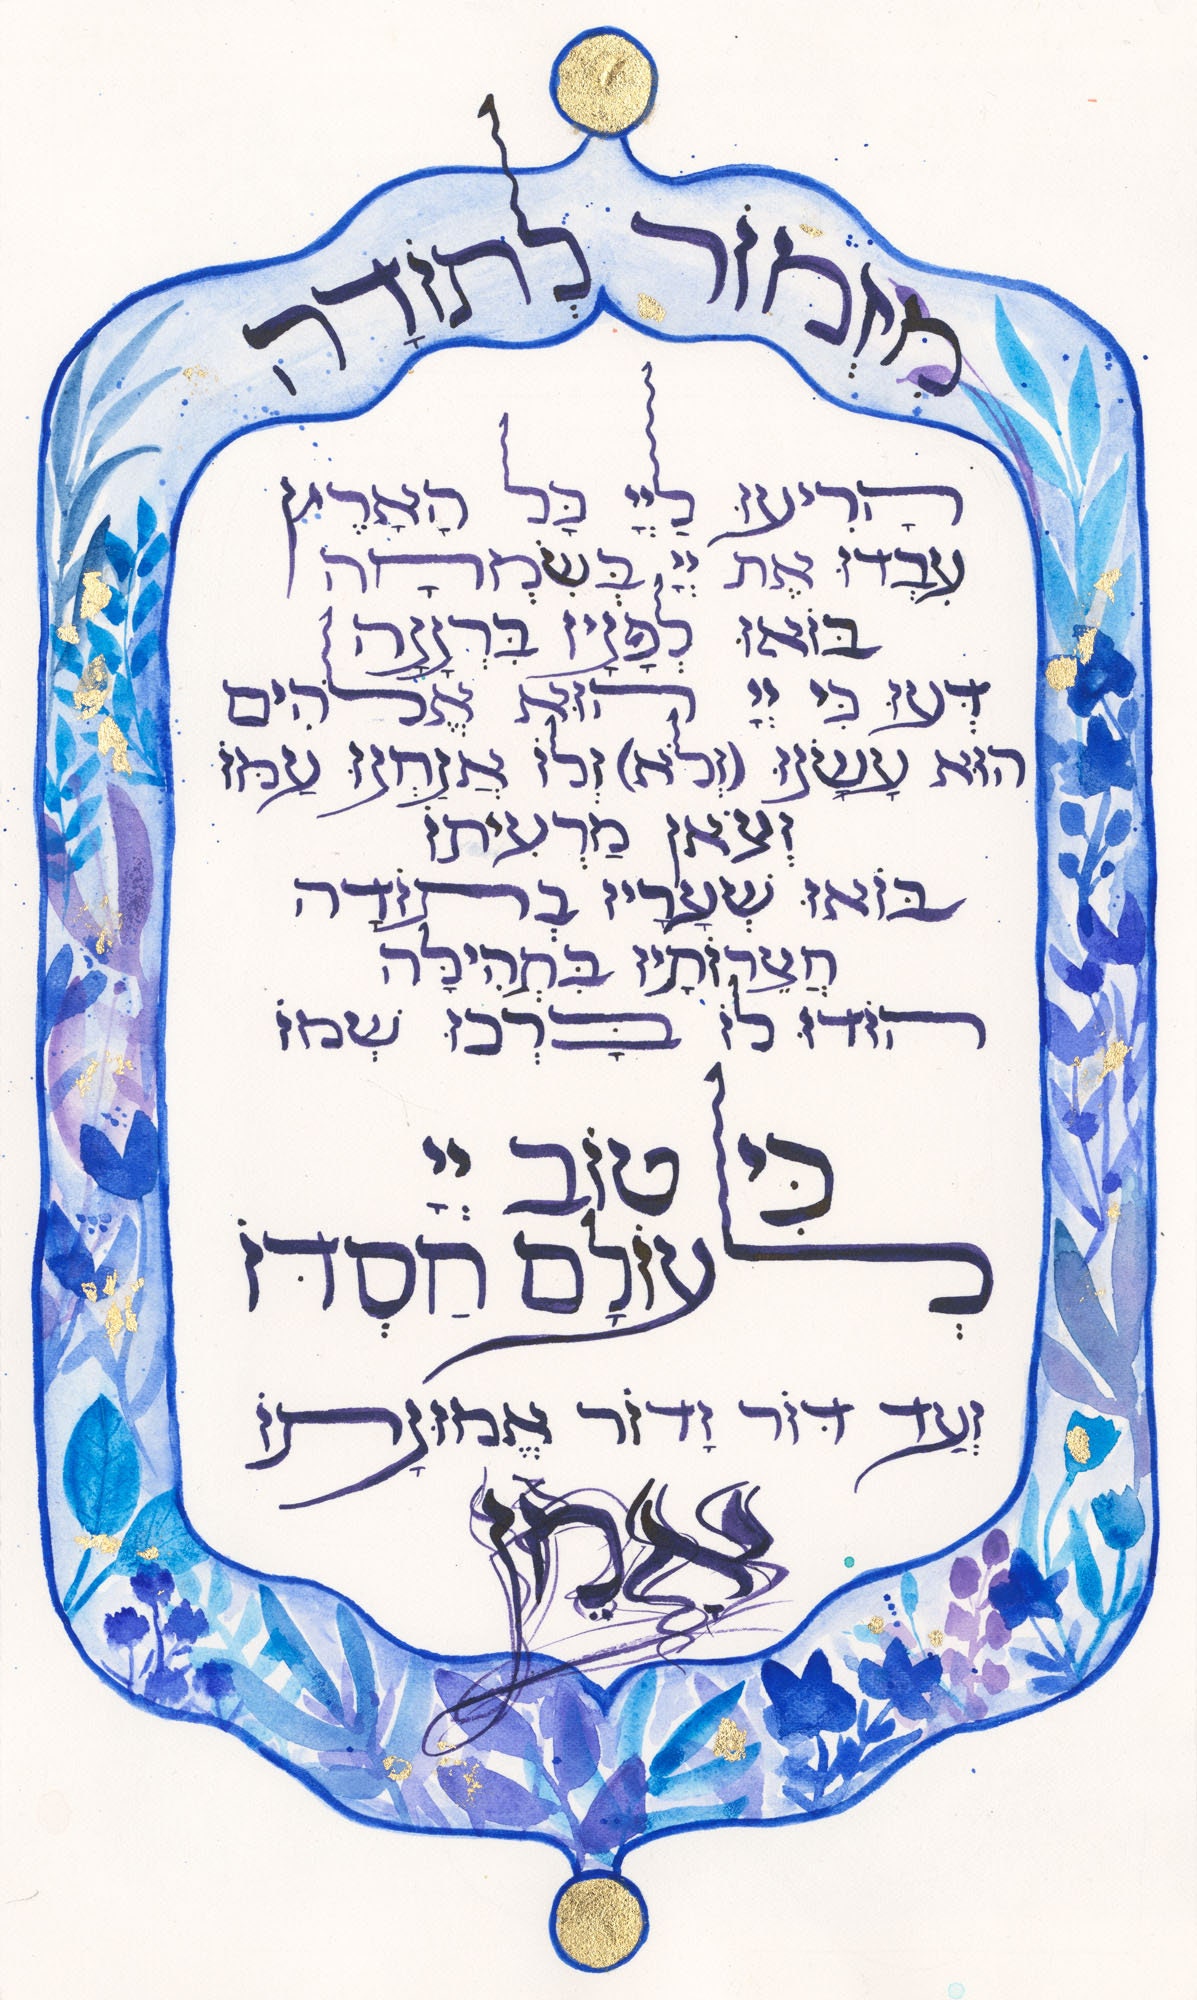 מִזְמוֹר לְתוֹדָה
הָרִיעוּ לַיְיָ כָּל הָאָרֶץ
עִבְדוּ אֶת יְיָ בְּשִׂמְחָה
בּוֹאוּ לְפָנָיו בִּרְנָנָה
דְּעוּ כִּי יְיָ הוּא אֱלֹהִים
הוּא עָשָׂנוּ (וְלֹא) וְלוֹ אֲנַחְנוּ עַמּוֹ
וְצֹאן מַרְעִיתוֹ
בּוֹאוּ שְׁעָרָיו בְּתוֹדָה
חֲצֵרוֹתָיו בִּתְהִילָּה
הוֹדוּ לוֹ בָּרְכוּ שְׁמוֹ
כִּי טוֹב יְיָ
לְעוֹלָם חַסְדּוֹ
וְעַד דּוֹר וָדוֹר אֱמוּנָתוֹ
אָמֵן